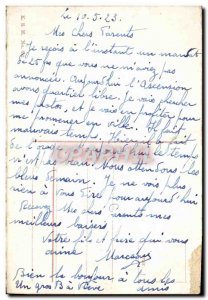 le 10.5.23.
Mes chers Parents
Je reçois à l'instant un mandat
de 25 frs que vous ne m'aviez pas
annoncé. Aujourd'hui l'Ascension
nous quartier libre. Je vais chercher
mes photos. et je vais en profiter pour
me promener en ville. Il fait
mauvais temps. Hier il a fait
le temps
n'est pas Nous attendons les
bleus demain. Je ne vois plus
rien à vous dire pour aujourd'hui
Recevez Mes chers Parents mes
meilleurs baisers
Votre fils et frère qui vous
aime
Bien le bonjour à tous les
amis
Un gros B à Rève